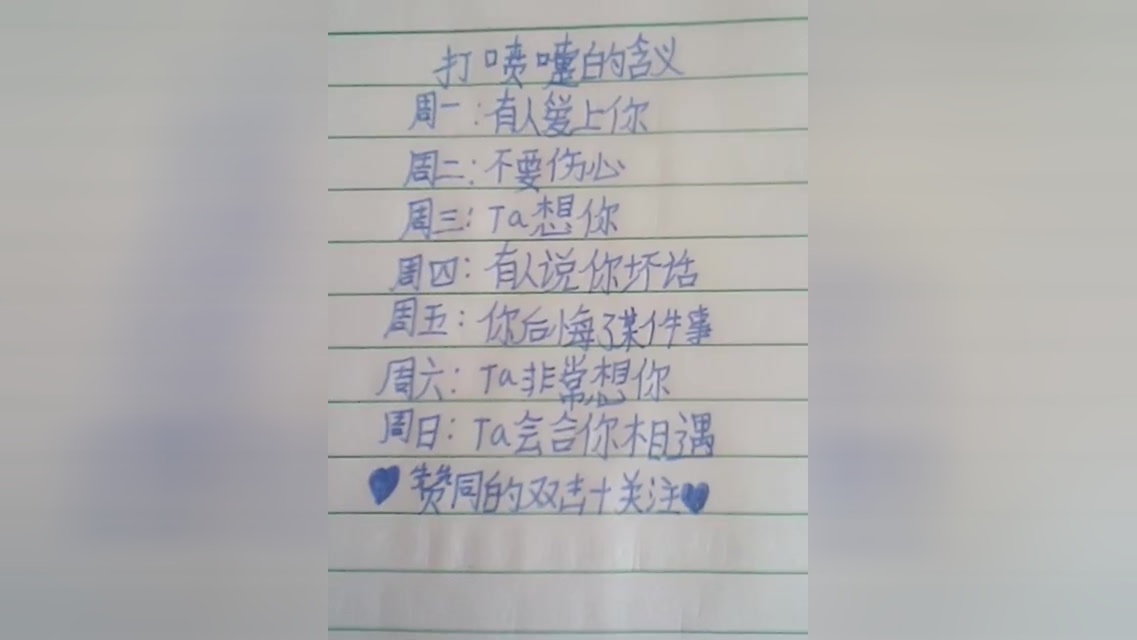 打喷嚏的含义
周一:有人爱上你
周二:不要伤心
周三:Ta想你
周四:有人说你坏话
周五:你后悔了某件事
周六:Ta非常想你
周日:Ta会合你相遇
♥赞同的双击+关注♥